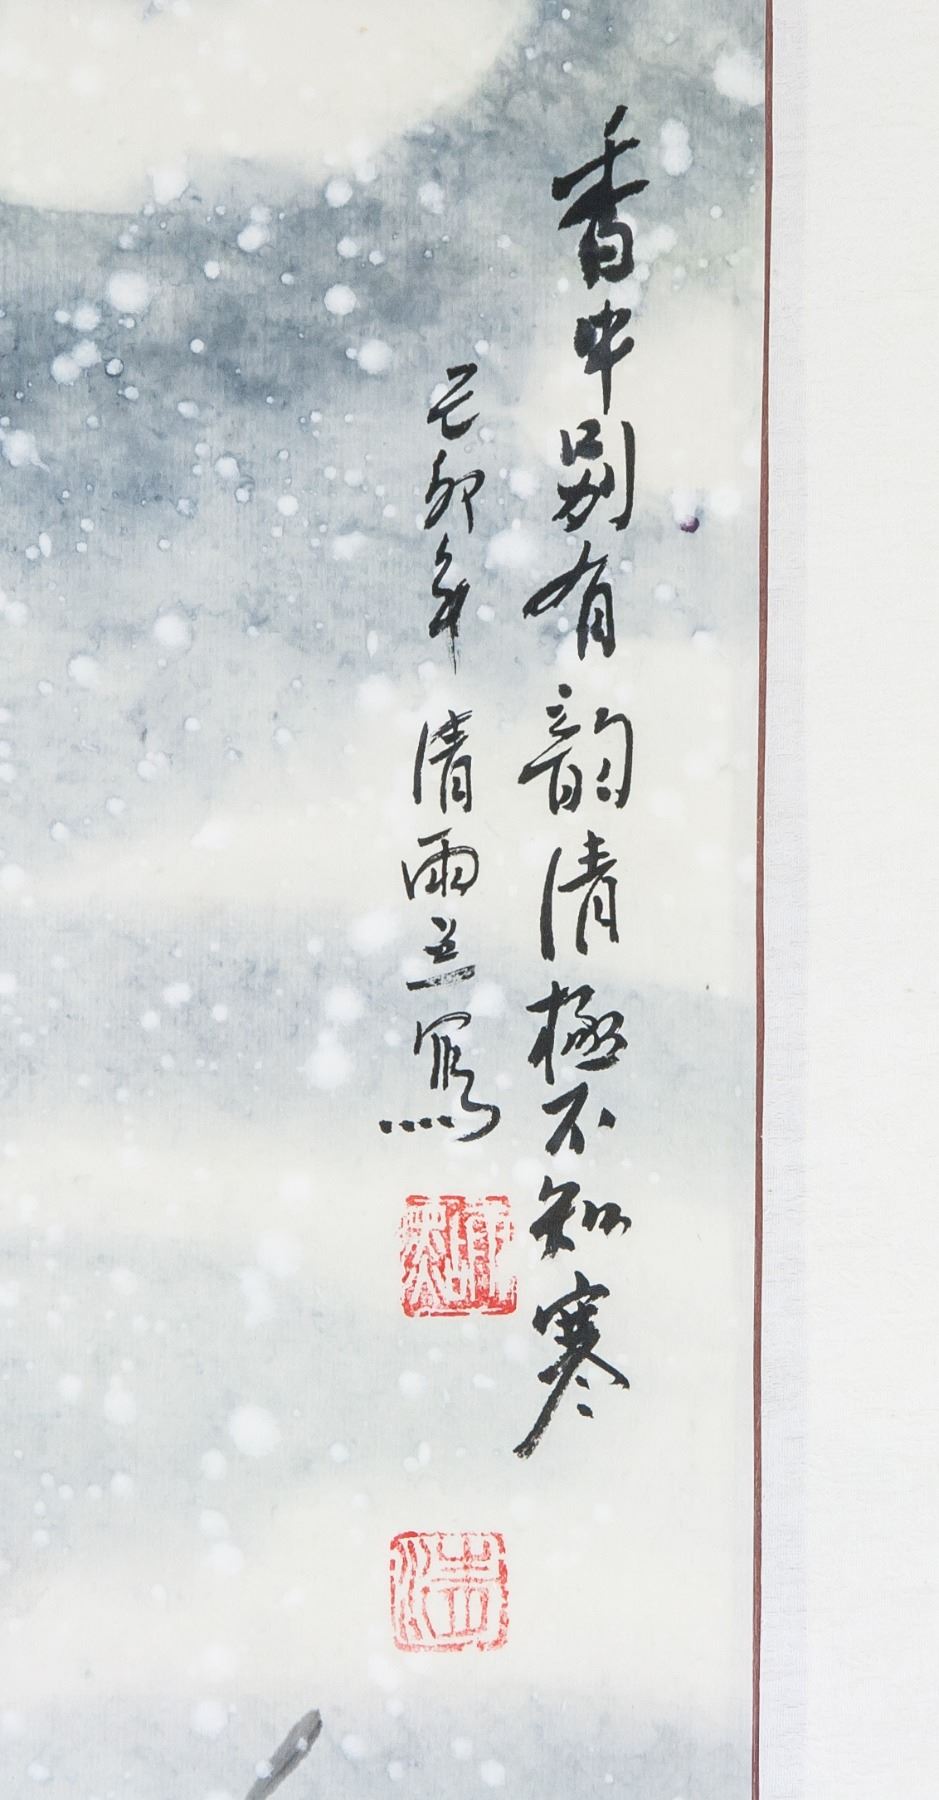 香中别有韵清極不知寒
己卯年清雨兰寫